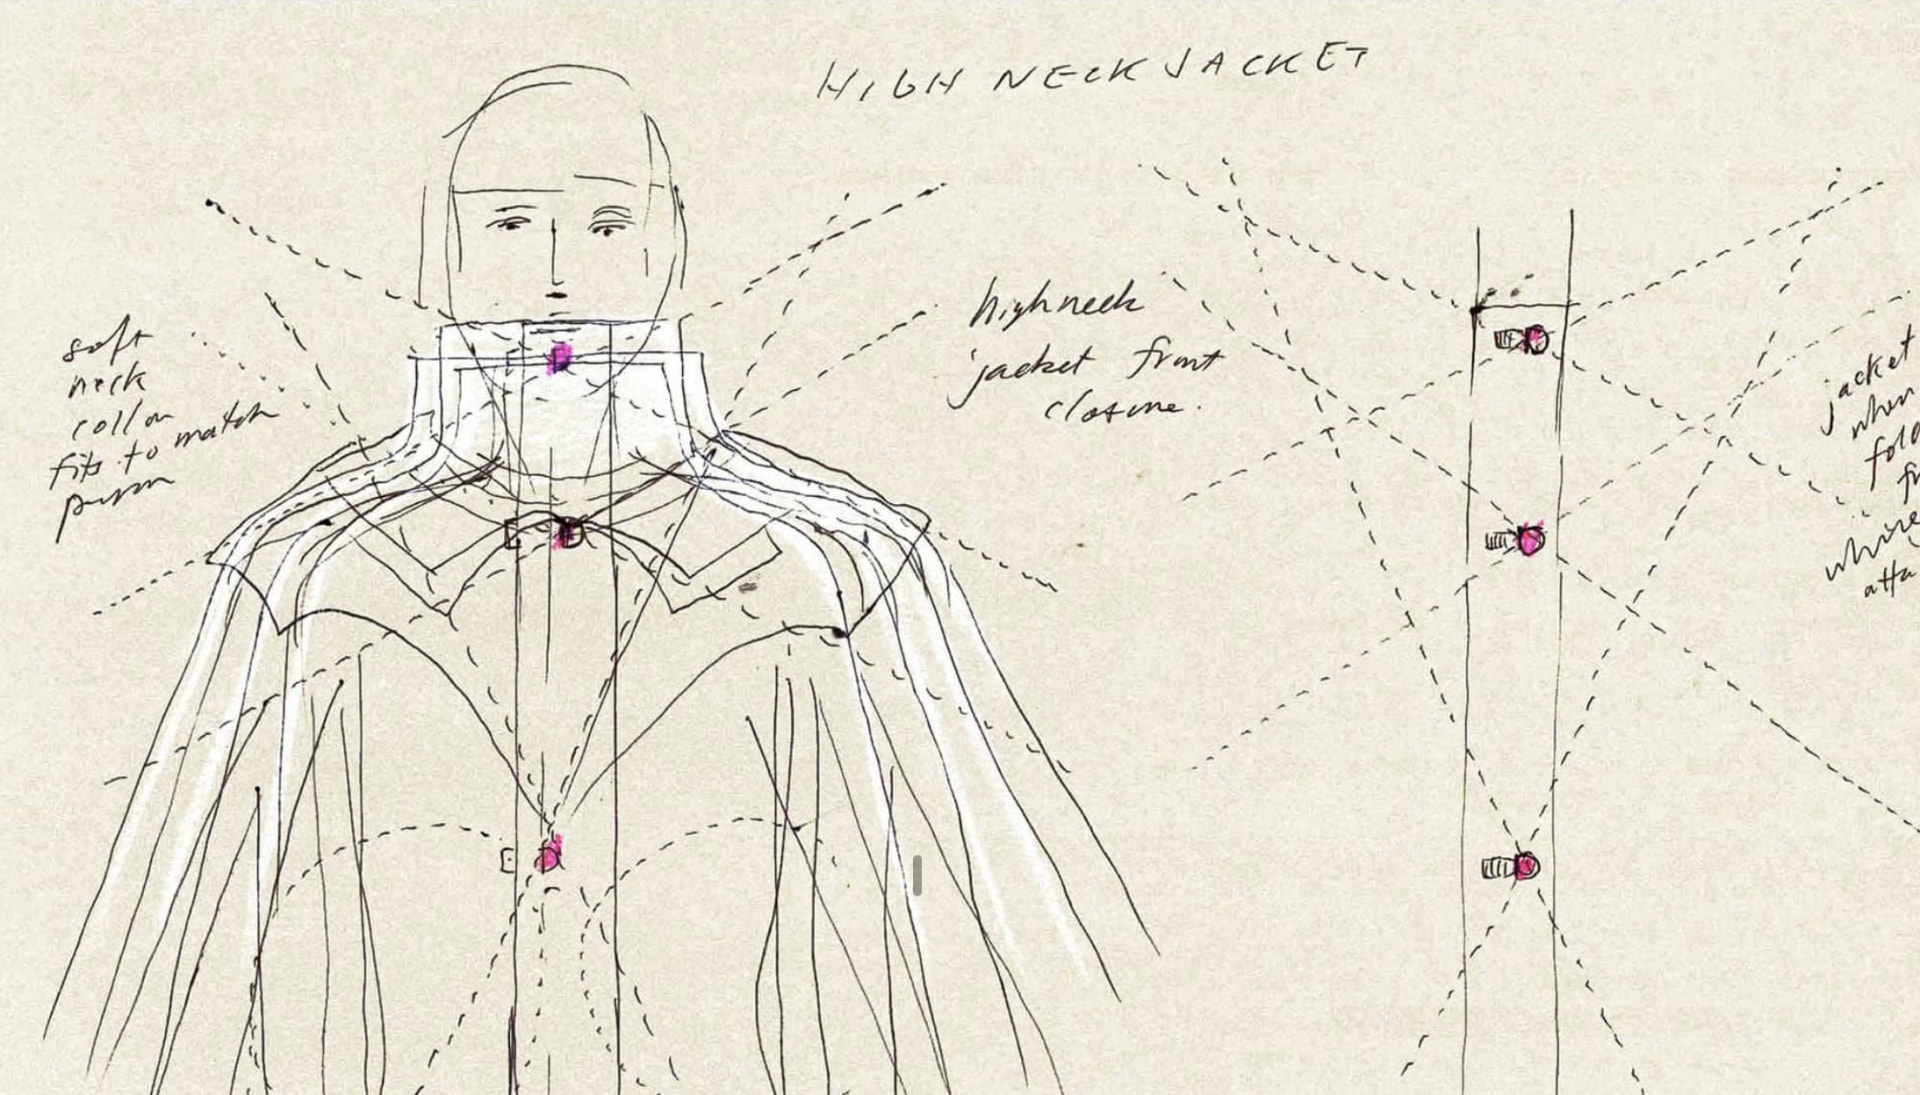 HIGH NECK JACKET
soft
neck
collar
fits to match
person
high neck
jacket front
closure.
jacket
when